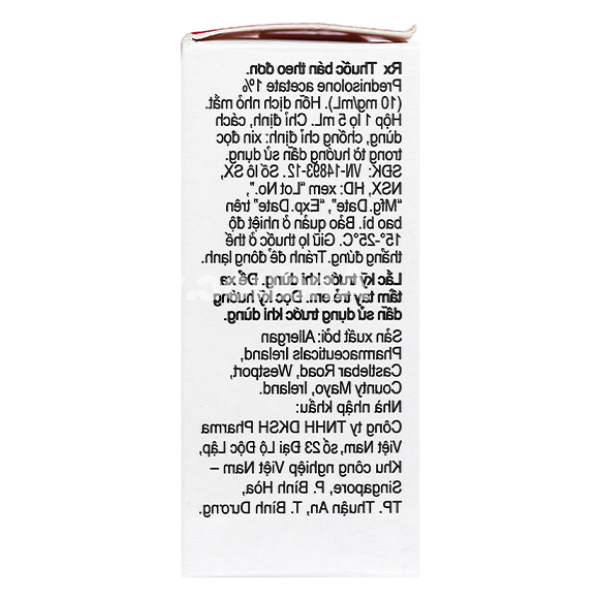 Rx Thuốc bán theo đơn.
Prednisolone acetate 1%
(10 mg/mL). Hỗn dịch nhỏ mắt.
Hộp 1 lọ 5 mL. Chỉ định, cách
dùng, chống chỉ định: xin đọc
trong tờ hướng dẫn sử dụng.
SDK: VN-14893-12. Số lô SX,
NSX, HD: xem “Lot No.”,
“Mfg. Date”, “Exp. Date” trên
bao bì. Bảo quản ở nhiệt độ
15°-25°C. Giữ lọ thuốc ở thế
thẳng đứng. Tránh để đông lạnh.
Lắc kỹ trước khi dùng. Để xa
tầm tay trẻ em. Đọc kỹ hướng
dẫn sử dụng trước khi dùng.
Sản xuất bởi: Allergan
Pharmaceuticals Ireland,
Castlebar Road, Westport,
County Mayo, Ireland.
Nhà nhập khẩu:
Công ty TNHH DKSH Pharma
Việt Nam, số 23 Đại Lộ Độc Lập,
Khu công nghiệp Việt Nam –
Singapore, P. Bình Hòa,
TP. Thuận An, T. Bình Dương.